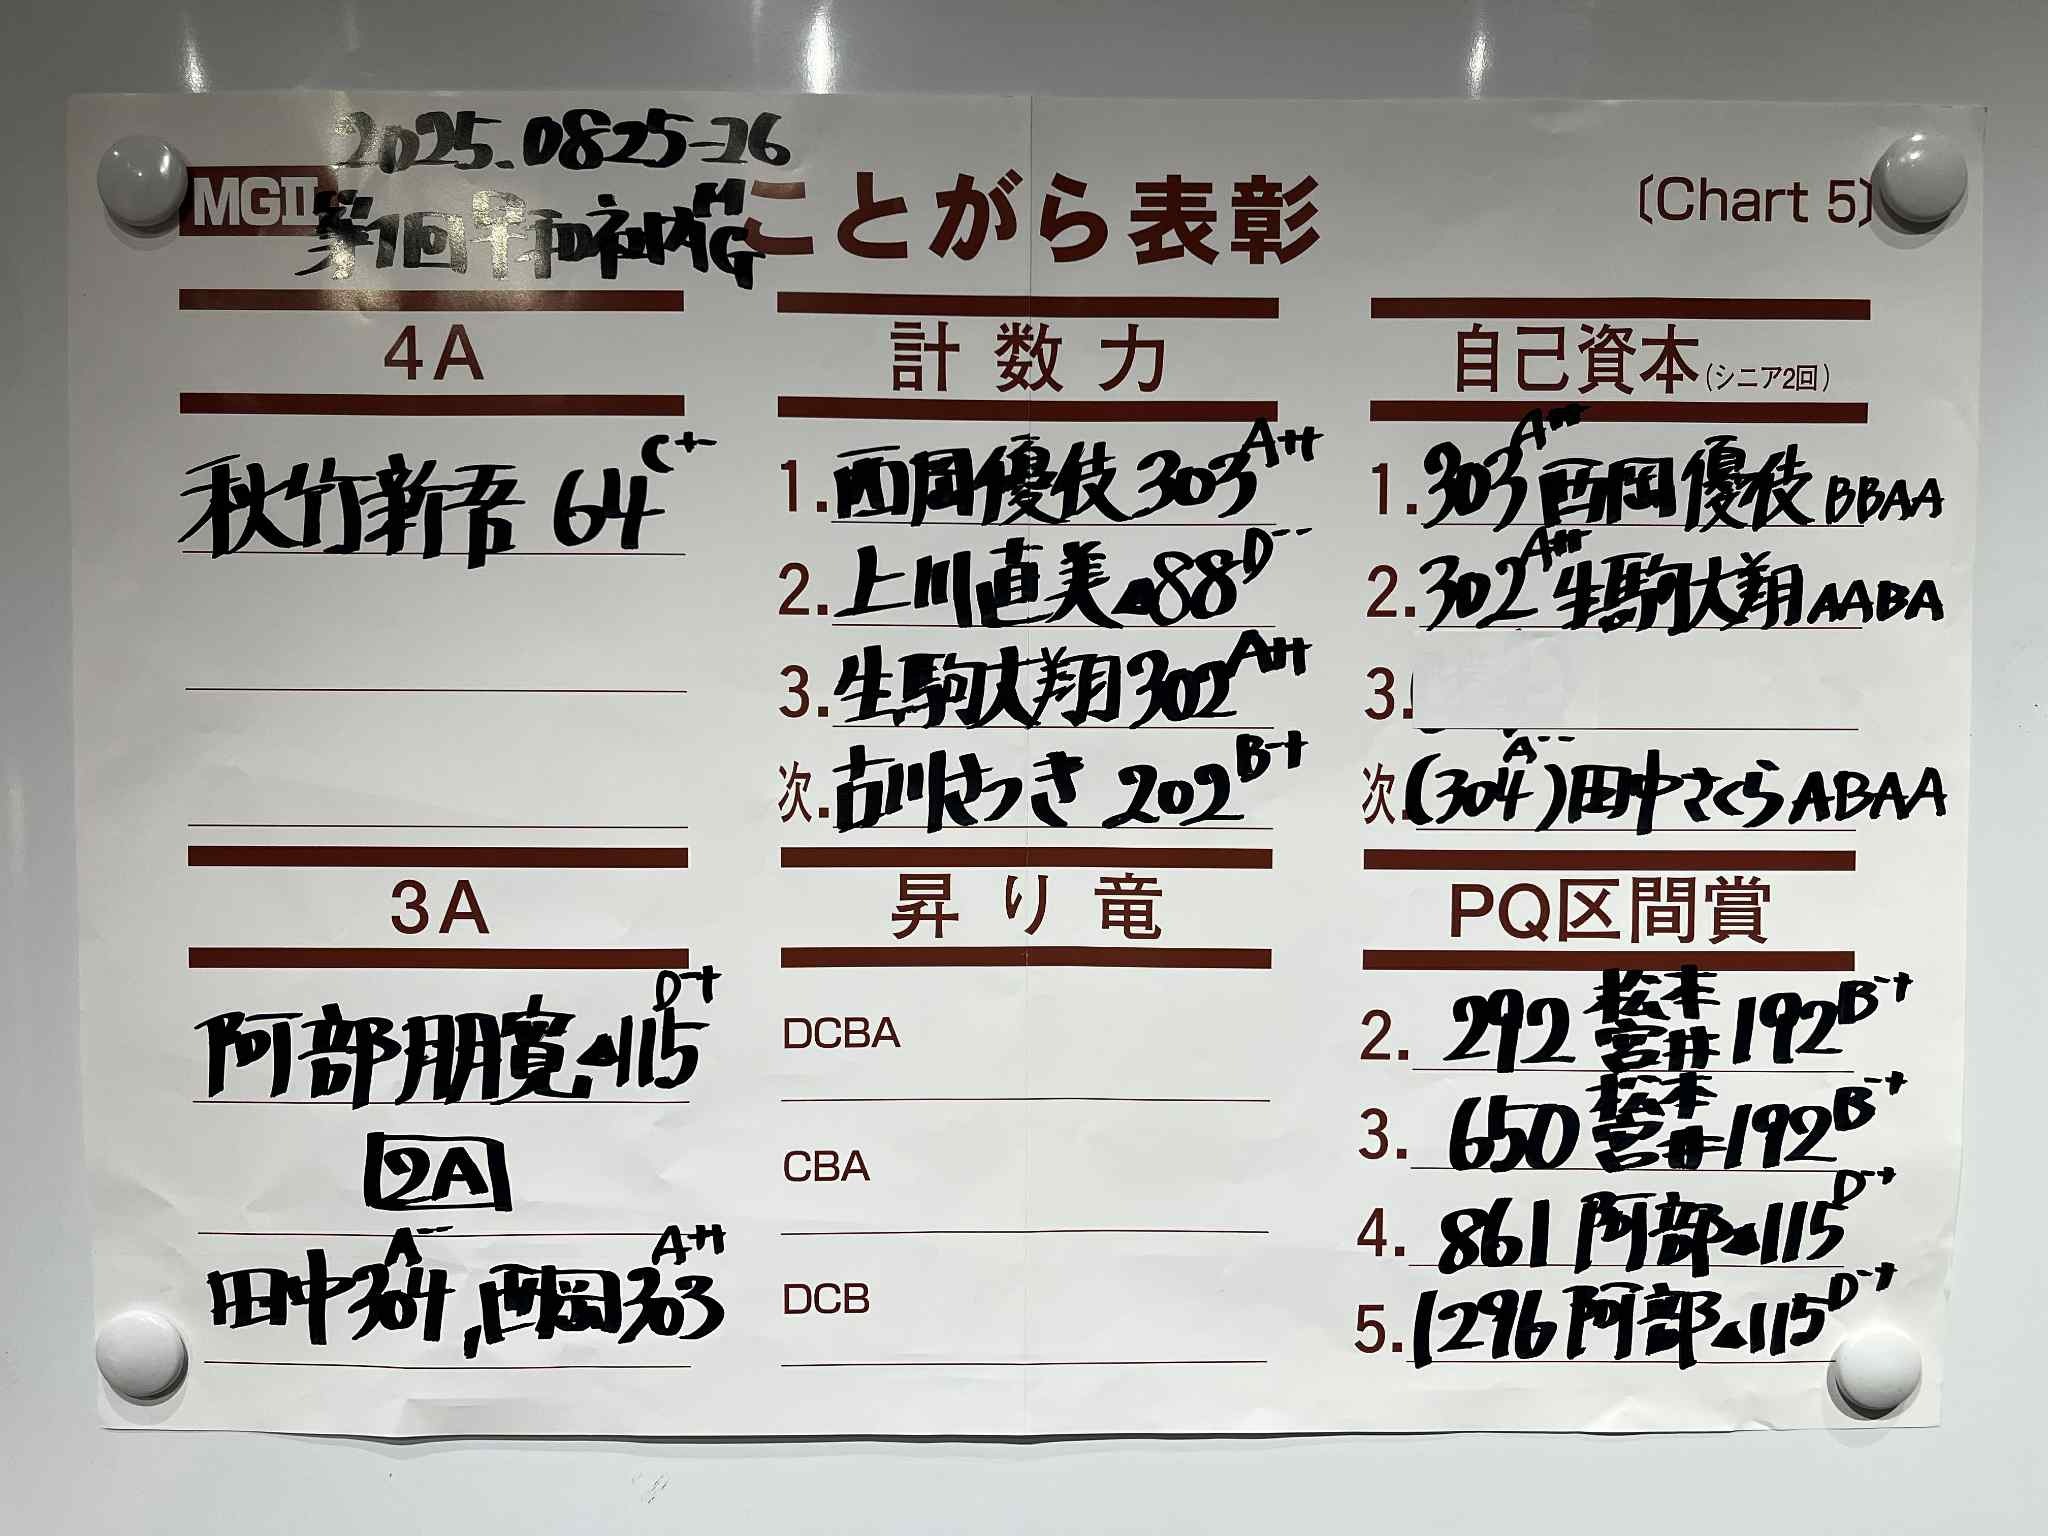 2025.0825-26
MGⅡ 第1回早和社内MG ことがら表彰 〔Chart 5〕
4A
秋竹新吾 64 C+-
3A
阿部朋寛 ▲115 D-+
2A
田中304 A--, 西岡303 A++
計数力
1. 西岡優伎 303 A++
2. 上川直美 ▲88 D--
3. 生駒大翔 302 A++
次. 古川さつき 202 B-+
昇り竜
DCBA
CBA
DCB
自己資本(シニア2回)
1. 303 A++ 西岡優伎 BBAA
2. 302 A++ 生駒大翔 AABA
3.
次. (304 A--) 田中さくら ABAA
PQ区間賞
2. 292 松本 宮井 192 B-+
3. 650 松本 宮井 192 B-+
4. 861 阿部 ▲115 D-+
5. 1296 阿部 ▲115 D-+